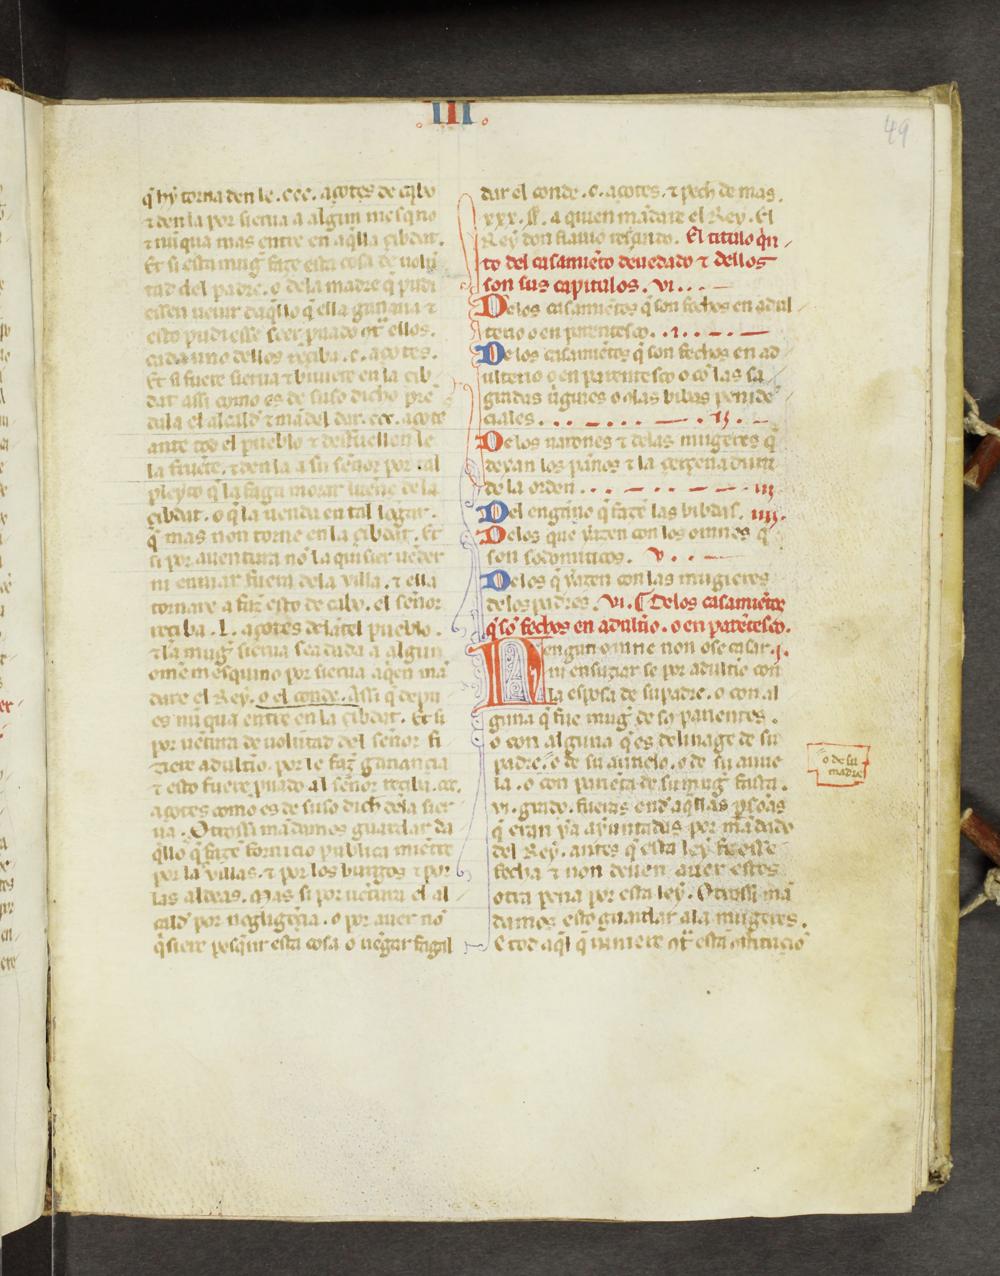 III
49
q̃ hy torna den le .ccc. açotes de cabo
⁊ den la por sierua a algun mesq̃no
⁊ nũqua mas entre en aq̃lla çibdat.
Et si esta mug̃ faze esta cosa de volũ
tad del padre. o dela madre q̃ pudi
essen veuir daq̃llo q̃ ella ganaua ⁊
esto pudiesse seer ꝓuado cõtra ellos.
cada uno dellos reçiba .c. açotes.
Et si fuere sierua ⁊ biuiere en la çib
dat assi como es de suso dicho pre
dala el alcald̃ ⁊ mãdel dar .ccc. açote
ante todo el pueblo ⁊ desfuellen le
la fruente. ⁊ den la a su señor por tal
pleyto q̃ la faga morar luene de la
çibdat. o q̃ la uenda en tal logar.
q̃ mas non torne en la çibdat. Et
si por auentura nõ la quisier ueder
ni enuiar fuera dela villa. ⁊ ella
tornare a faz̃ esto de cabo. el señor
reçiba .L. açotes delãtel pueblo.
⁊ la mug̃ sierua sea dada a algun
ome mesquino por sierua aqen mã
dare el Rey. o el conde. Assi q̃ depu
es nũqua entre en la çibdat. Et si
por uẽtura de volũtad del señor fi
ziere adulterio. por le faz̃ ganancia
⁊ esto fuere ꝓuado al señor reçiba .ccc.
açotes como es de suso dich dela sier
ua. Otrossi mãdamos guardar da
q̃llo q̃ faze fornicio publica miẽte
por la villas. ⁊ por los burgos ⁊ por
las aldeas. Mas si por uẽtura el al
cald̃ por negligẽçia. o por auer nõ
q̃siere pesquir esta cosa o uẽgar fagal
dar el conde .c. açotes. ⁊ pech de mas
xxx. ss. a quien mãdare el Rey. El
Rey don flauio resçindo. El titulo qn
to del casamiẽto deuedado ⁊ dellos
son sus capitulos. vi...
Delos casamiẽtos q̃ son fechos en adul
terio o en parentesco. .i.
De los casamiẽtos q̃ son fechos en ad
ulterio o en parentesco o cõ las sa
gradas ũgines o cõlas bibdas peñidẽ
ciales ... ij.
De los uarones ⁊ delas mugeres q̃
dexan los pãnos ⁊ la çerçena
de la orden ... iij
Del engãno q̃ fazẽ las bibdas. iiij.
Delos que yazen con los omnes q̃
son sodomiticos. v.
De los q̃ yazen con las mugieres
delos padres. vi. ¶ De los casamiẽtos
q̃ sõ fechos en adultio. o en parẽtesco.
Nengun omne non ose casar .i.
ni ensuziar se por adultio con
la esposa de su padre. o con al
guna q̃ fue mug̃ de so parientes.
o con alguna q̃ es de linage de su
padre. o de su auuelo. o de su auue
la. o con pariẽta de su mug̃ fasta
.vi. grado. fueras end aq̃llas ꝑsonas
q̃ eran ya ayuntadas por mãdado
del Rey. antes q̃ esta ley fuesse
fecha ⁊ non deuen auer estos
otra pena por esta ley. Otrossi mã
damos esto guardar a la mugeres.
E tod aq̃l q̃ uiniere cõtra esta cõstitucio
o de su
madre